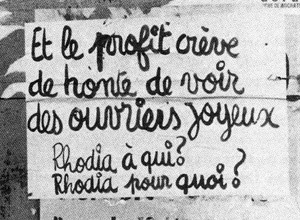 Et le profit crève
de honte de voir
des ouvriers joyeux
Rhodia à qui?
Rhodia pour quoi?